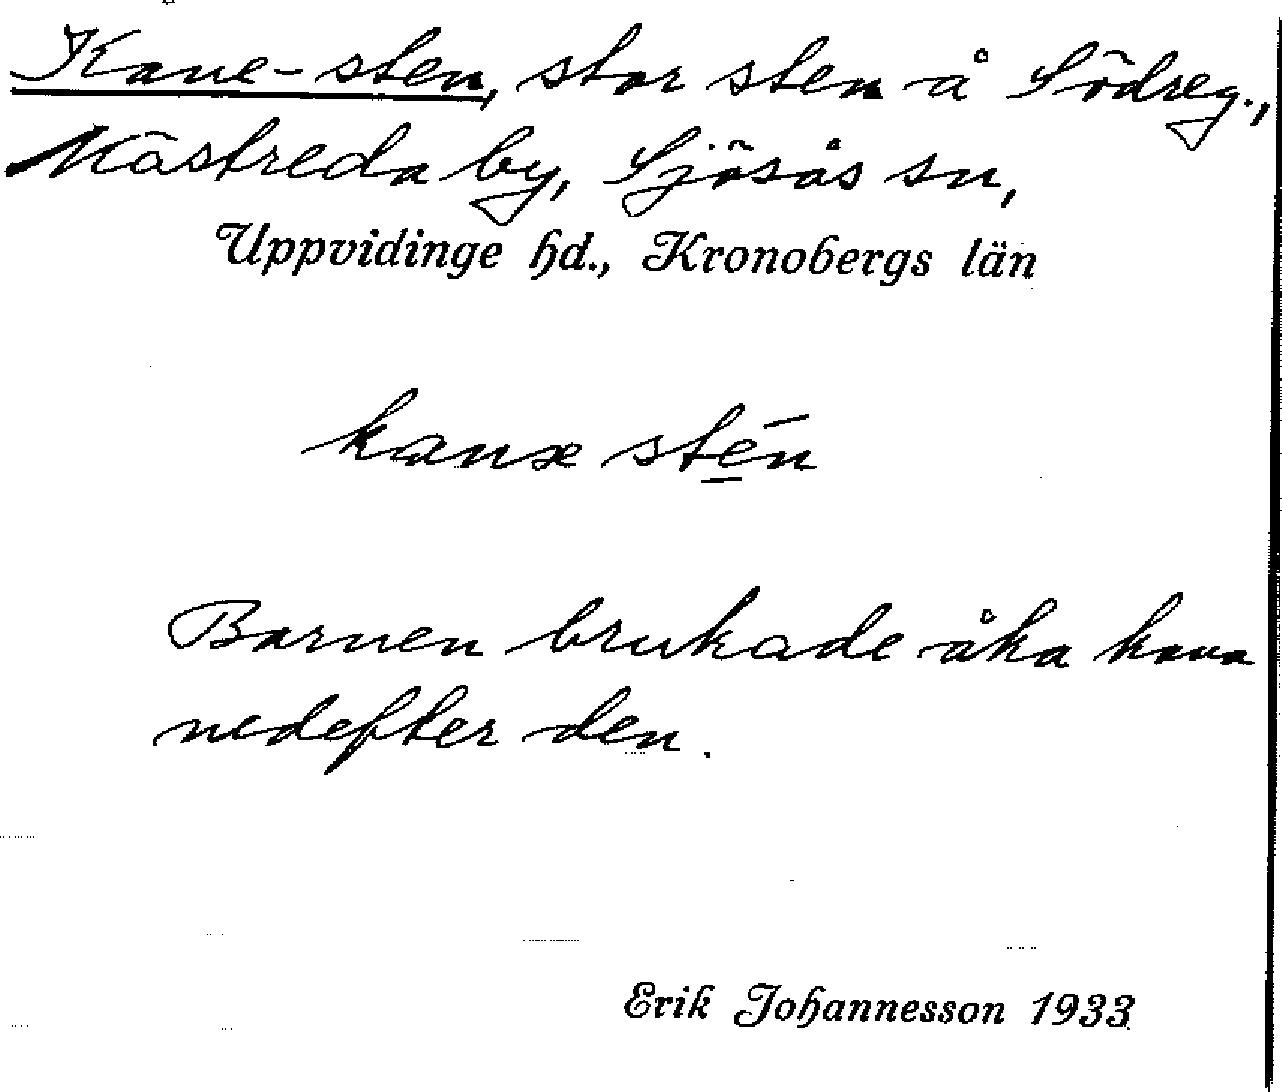 Kane-sten, stor sten å Södreg.,
Nästreda by, Sjösås sn,
Uppvidinge hd., Kronobergs län
kanæ stén
Barnen brukade åka kana
nedefter den.
Erik Johannesson 1933